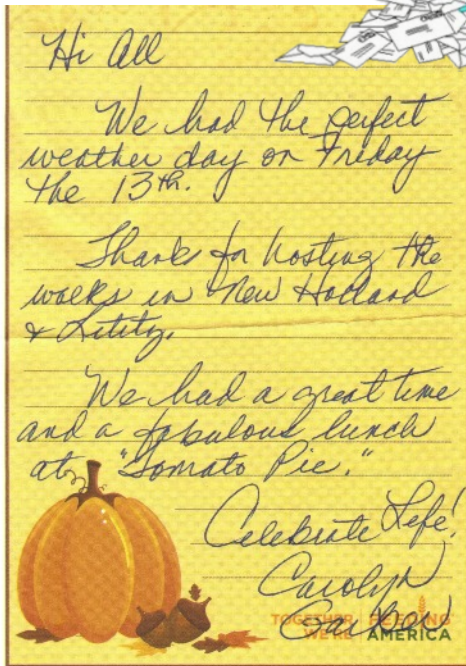 Hi All
We had the perfect
weather day on Friday
the 13th.
Thanks for hosting the
walks in New Holland
& Lititz.
We had a great time
and a fabulous lunch
at "Tomato Pie."
Celebrate Life!
Carolyn
TOGETHER
WE'RE
FEEDING
AMERICA